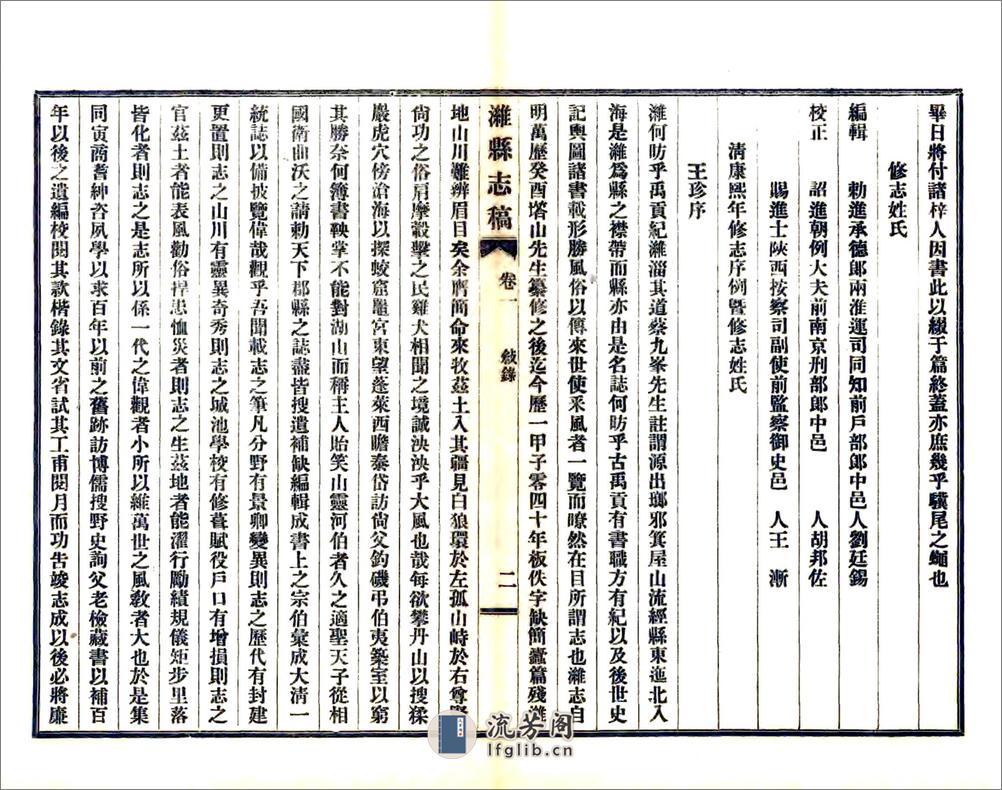 畢日將付諸梓人因書此以綴于篇終蓋亦庶幾乎驥尾之蠅也
修志姓氏
編輯 勅進承德郎兩淮運司同知前戶部郎中邑人劉廷錫
校正 詔進朝例大夫前南京刑部郎中邑 人胡邦佐
賜進士陝西按察司副使前監察御史邑 人王 漸
清康熙年修志序例暨修志姓氏
王珍序
濰何昉乎禹貢紀濰淄其道蔡九峯先生註謂源出瑯邪箕屋山流經縣東迤北入
海是濰爲縣之襟帶而縣亦由是名誌何昉乎古禹貢有書職方有紀以及後世史
記輿圖諸書載形勝風俗以傳來世使釆風者一覽而瞭然在目所謂志也濰志自
明萬歷癸酉塔山先生纂修之後迄今歷一甲子零四十年板佚字缺簡蠹篇殘濰
濰縣志稿 卷一 敍錄 二
地山川難辨眉目矣余膺簡命來牧茲土入其疆見白狼環於左孤山峙於右尊賢
尙功之俗肩摩轂擊之民雞犬相聞之境誠泱泱乎大風也哉每欲攀丹山以搜
巖虎穴傍滄海以探蛟窟鼉宮東望蓬萊西瞻泰岱訪尙父釣磯弔伯夷築室以窮
其勝奈何簿書鞅掌不能對湖山而稱主人貽笑山靈河伯者久之適聖天子從相
國衛曲沃之請勅天下郡縣之誌盡皆搜遺補缺編輯成書上之宗伯彙成大淸一
統誌以備披覽偉哉觀乎吾聞載志之筆凡分野有景卿變異則志之歷代有封建
更置則志之山川有靈異奇秀則志之城池學校有修葺賦役戶口有增損則志之
官茲土者能表風勸俗捍患恤災者則志之生茲地者能濯行勵績規儀矩步里落
皆化者則志之是志所以係一代之偉觀者小所以維萬世之風敎者大也於是集
同寅商耆紳咨夙學以求百年以前之舊跡訪博儒搜野史詢父老檢藏書以補百
年以後之遺編校閱其款楷錄其文省試其工甫閱月而功告竣志成以後必將廉
流芳阁
lfglib.cn